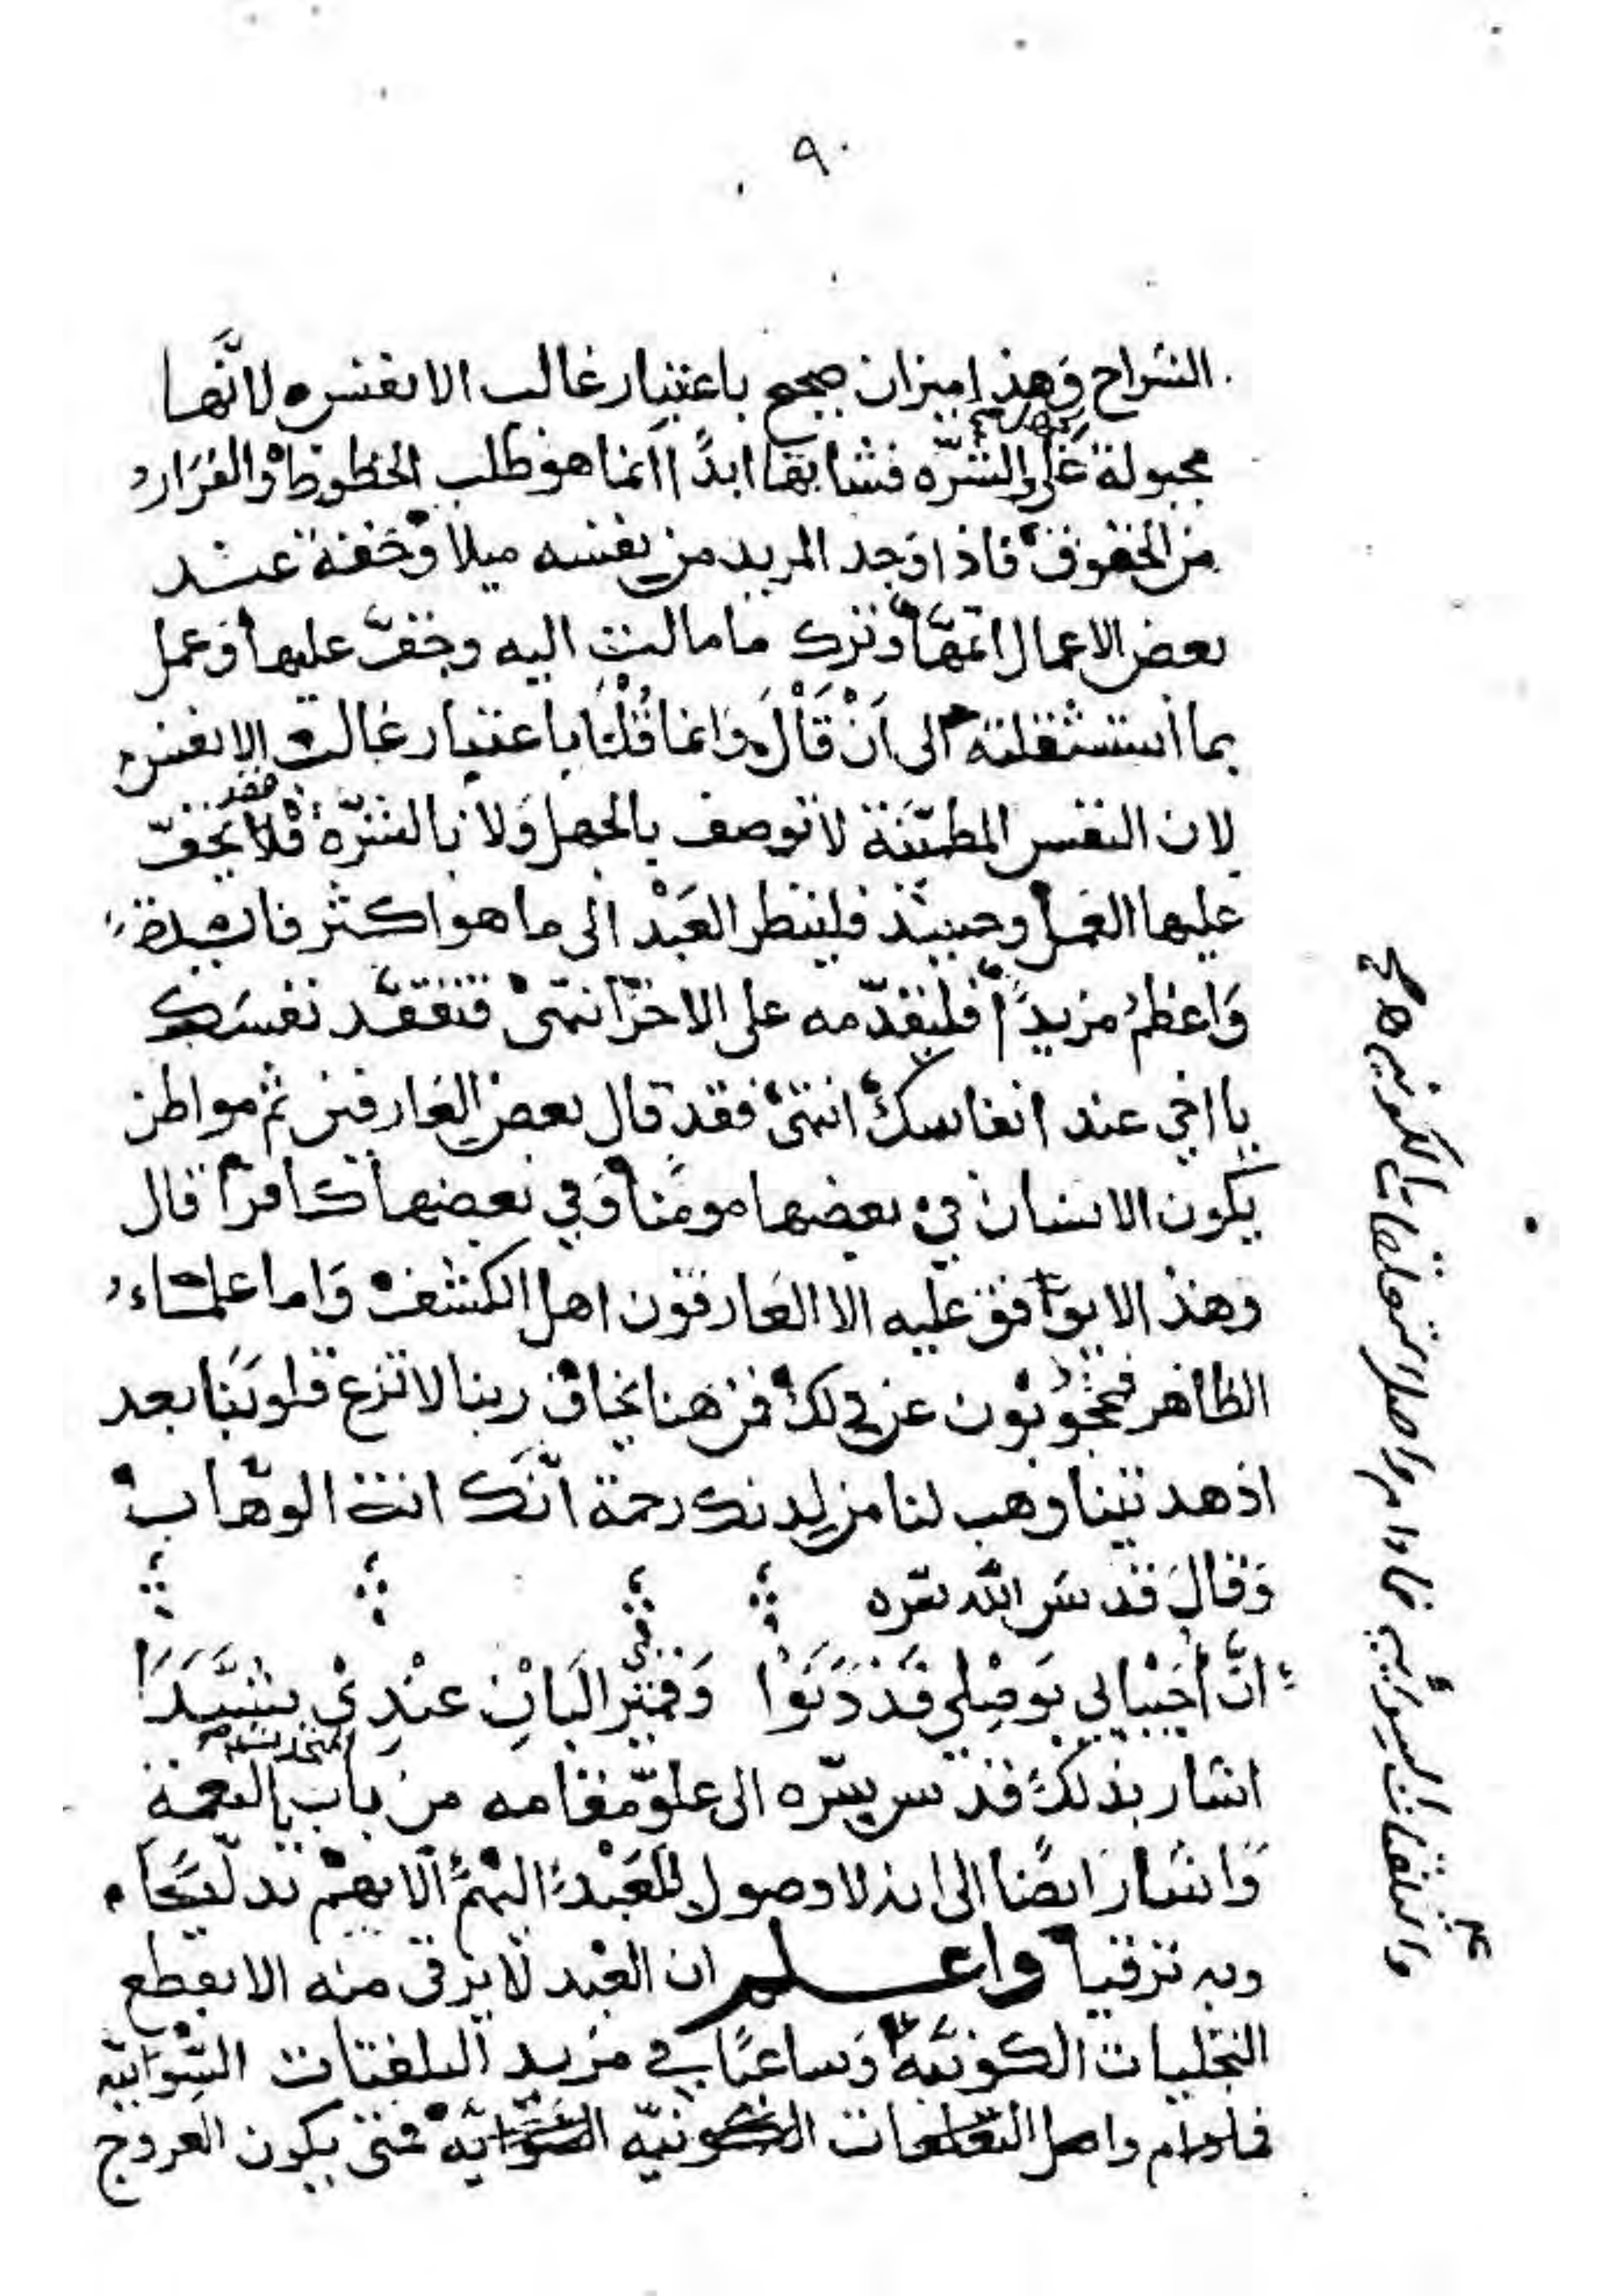 ٩٠
الشراح وهذا ميزان صحيح باعتبار غالب الانفس لانها
مجبولة على الجهل والشره فشانها ابدًا انما هو طلب الحظوظ والفرار
من الحقوق فاذا وجد المريد من نفسه ميلا وخفة عند
بعض الاعمال اتهمها وترك ما مالت اليه وخف عليها وعمل
بما استثقلته الى اَنْ قَالَ وانما قُلْنَا باعتبار غالب الانفس
لان النفس المطمئنة لا توصف بالجهل ولا بالشره فقد لا يخف
عليها العمل وحينئذ فلينظر العَبْد الى ما هو اكثر فائدة
وَاعظم مزيدًا فليقدّمه على الاخر انتهى فتفقد نفسك
يا اخي عند انفاسك انتهى فقد قال بعض العارفين ثم مواطن
يكون الانسان في بعضها مومنا وفي بعضها كافرًا قال
وهذا لا يوافق عليه الا العارفون اهل الكشف وَاما علماء
الظاهر فمحجوبون عن ذلك فمن هنا يخاف ربنا لا تزغ قلوبنا بعد
اذ هديتنا وهب لنا من لدنك رحمة انّك انت الوهّاب
وَقالَ قدس اللّه سرّه
انَّ أحْبَابي بوَصْلي قَدْ دَنَوْا وَقمْري البَانِ عنْدِيْ بشَّرَا
اشار بذلك قدّس سرّه الى علوّ مقامه من باب التحدث بالنعمة
وَاشارَ ايضًا الى انه لا وصول للعَبْد اليهم الا بهم تدليًا
وبه ترقيا واعلم ان العَبْد لا يرقى منه الا بقطع
التجليات الكونيّة وَساعيًا في مزيد التلفتات السِّوَائيه
فما دام واصل التعلقات الكونيّه السِّوَائيّه فمتى يكون العروج
والتلفتات السوائيه فما دام واصل التعلقات الكونيه صح